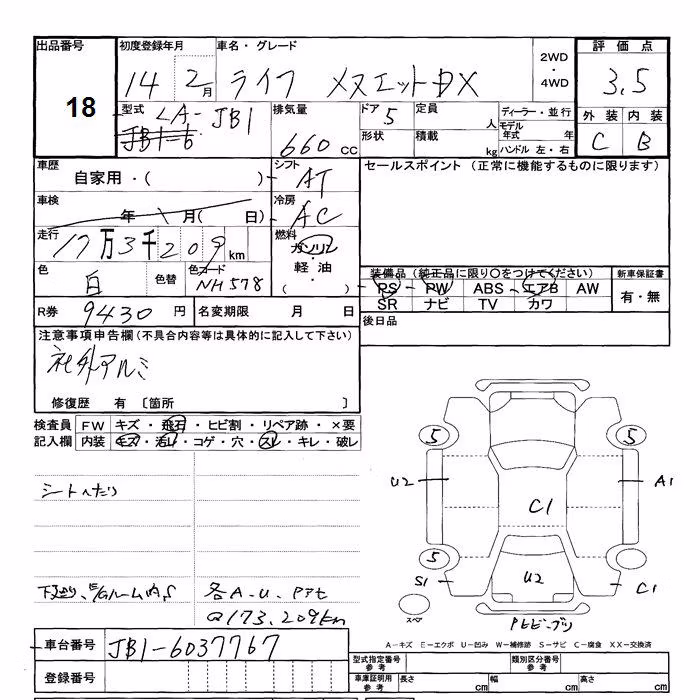 出品番号 初度登録年月 車名・グレード 2WD・4WD 評価点
18 14 2月 ライフ メヌエットDX 3.5
型式 LA-JB1 排気量 660cc ドア 5 定員 人 ディーラー・並行 外装 内装
JB1=6 形状 積載 kg モデル年式 年 C B
ハンドル 左・右
車歴 自家用・( ) シフト AT セールスポイント (正常に機能するものに限ります)
車検 年 月( 日) 冷房 AC
走行 17万3千209km 燃料 ガソリン・軽油・( )
色 白 色替 色コード NH578 装備品(純正品に限り○をつけてください) 新車保証書
PS PW ABS エアB AW 有・無
SR ナビ TV カワ
R券 9430円 名変期限 月 日 後日品
注意事項申告欄(不具合内容等は具体的に記入して下さい)
社外アルミ
修復歴 有〔箇所 〕
検査員記入欄 FW キズ・飛石・ヒビ割・リペア跡・×要
内装 キズ・汚レ・コゲ・穴・スレ・キレ・破レ
5 5
U2 A1
シートへたり C1
5
S1 U2 C1
各A-U、
Q173,209km スペア
A-キズ E-エクボ U-凹み W-補修跡 S-サビ C-腐食 XX-交換済
車台番号 JB1-6037767
型式指定番号参考 類別区分番号参考
登録番号 車庫証明用参考 長さ cm 幅 cm 高さ cm